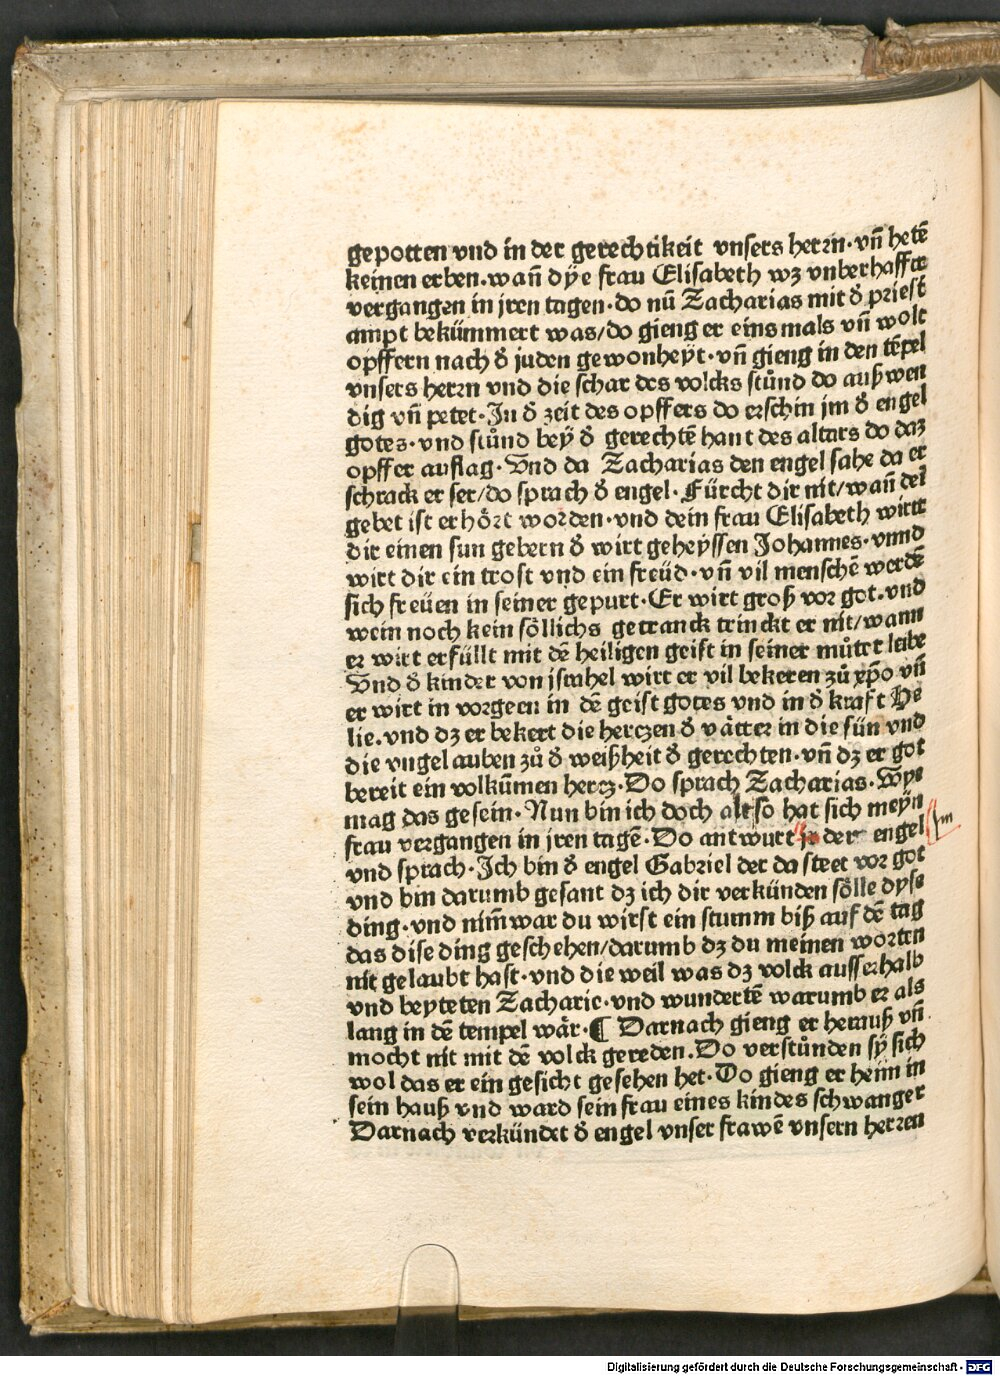 gepotten vnd in der gerechtikeit vnsers herrn·vn̄ hetē
keinen erben·wan̄ dÿe frau Elisabeth wʒ vnberhafft
vergangen in jren tagen·do nū Zacharias mit ð priest
ampt bekümmert was/do gieng er eins mals vn̄ wolt
opffern nach ð juden gewonheÿt·vn̄ gieng in den tēpel
vnsers herrn vnd die schar des volcks stůnd do außwen
dig vn̄ petet·In ð zeit des opffers do erschin jm ð engel
gotes·vnd stůnd beÿ ð gerechtē hant des altars do daʒ
opffer auflag·Vnd da Zacharias den engel sahe da er
schrack er ser/do sprach ð engel·Fürcht dir nit/wan̄ dei
gebet ist erhört worden·vnd dein frau Elisabeth wirt
dir einen sun gebern ð wirt geheÿssen Johannes·vnnd
wirt dir ein trost vnd ein freüd·vn̄ vil menschē werdē
sich freüen in seiner gepurt·Er wirt groß vor got·vnd
wein noch kein söllichs getranck trinckt er nit/wann
er wirt erfüllt mit dē heiligen geist in seiner můter leibe
Vnd ð kinder von israhel wirt er vil bekeren zů xp̄o vn̄
er wirt in vorgeen in dē geist gotes vnd in ð kraft He
lie·vnd dʒ er bekert die herczen ð vätter in die sün vnd
die vngelauben zů ð weißheit ð gerechten·vn̄ dʒ er got
bereit ein volkūmen hercʒ·Do sprach Zacharias·Wye
mag das gesein·Nun bin ich doch alt so hat sich meÿn
frau vergangen in jren tagē·Do antwurt der engel jm
vnd sprach·Ich bin ð engel Gabriel der da steet vor got
vnd bin darumb gesant dʒ ich dir verkünden sölle dyse
ding·vnd nim̄ war du wirst ein stumm biß auf dē tag
das dise ding geschehen/darumb dʒ du meinen worten
nit gelaubt hast·vnd die weil was dʒ volck ausserhalb
vnd beyteten Zacharie·vnd wundertē warumb er als
lang in dē tempel wär·¶ Darnach gieng er herauß vn̄
mocht nit mit dē volck gereden·Do verstůnden sÿ sich
wol das er ein gesicht gesehen het·Do gieng er heim in
sein hauß vnd ward sein frau eines kindes schwanger
Darnach verkündet ð engel vnser frawē vnsern herren
Digitalisierung gefördert durch die Deutsche Forschungsgemeinschaft · DFG